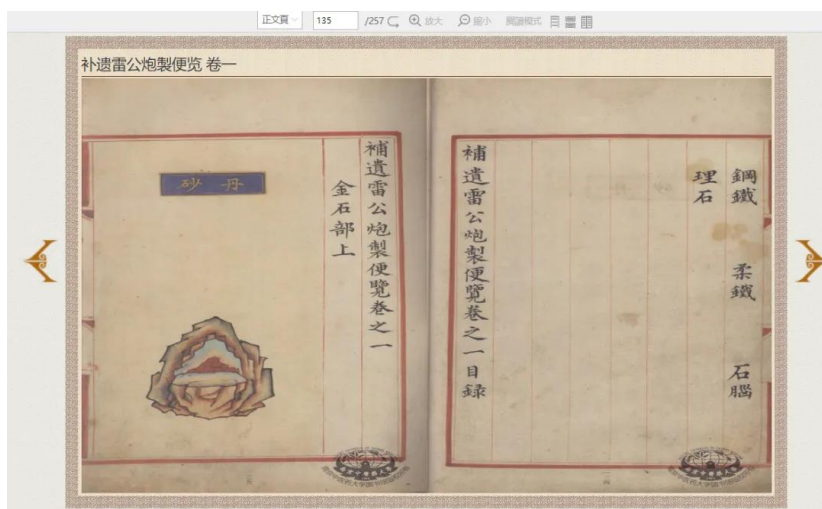 正文頁 135 /257 放大 縮小 閱讀模式
补遗雷公炮製便览 卷一
鋼鐵 柔鐵 石腦
理石
補遺雷公炮製便覽卷之一目録
補遺雷公炮製便覽卷之一
金石部上
丹砂